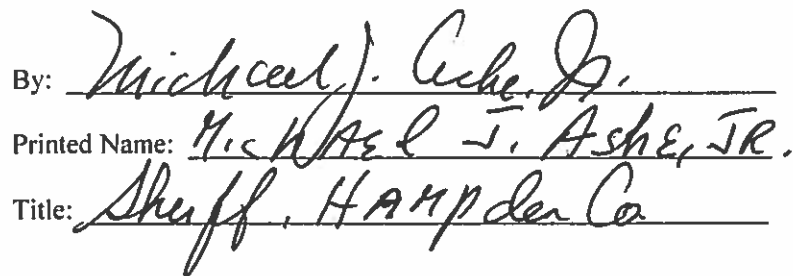 By: Michael J. Ashe, Jr.
Printed Name: MICHAEl J. AshE, JR.
Title: Sheriff, HAMPden Co